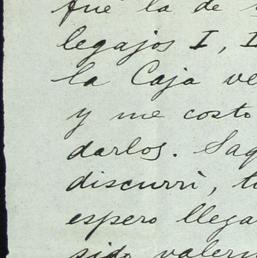 fué la de
legajos I, I
la Caja ve
y me costo
darlos. Saq
discurrí, t
espero llega
sido valer